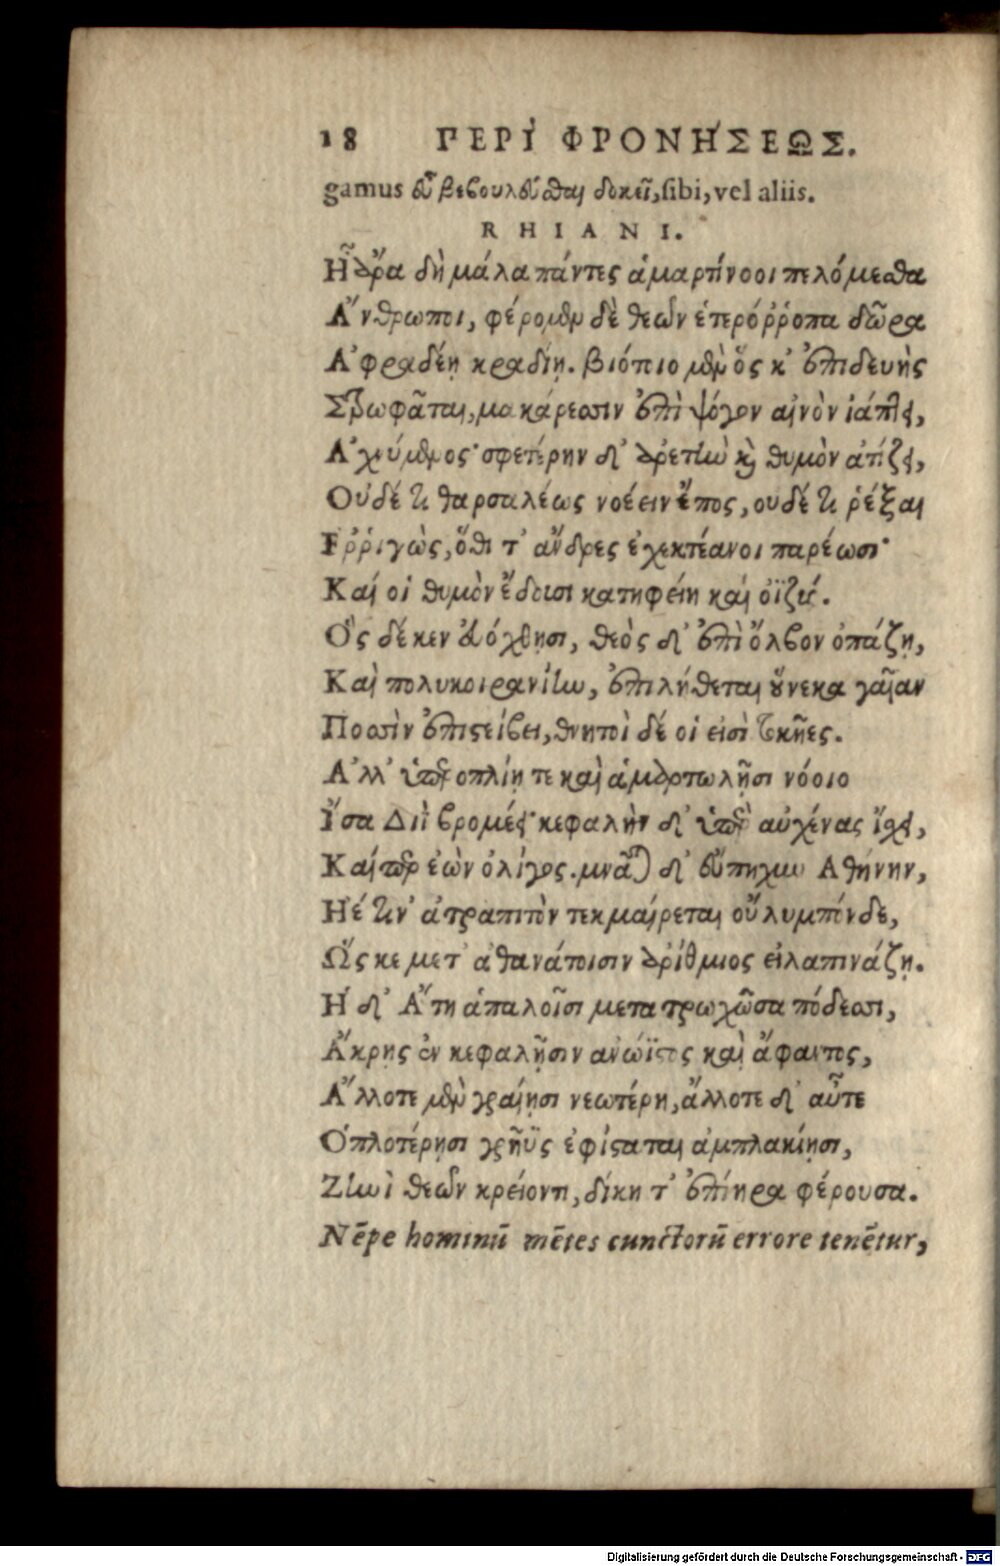 18 ΠΕΡῚ ΦΡΟΝΉΣΕΩΣ.
gamus εὖ βεβουλεῦσθαι δοκεῖ, sibi, vel aliis.
RHIANI.
Ἦ ἄρα δὴ μάλα πάντες ἁμαρτίνοοι πελόμεσθα
Ἄνθρωποι, φέρομεν δὲ θεῶν ἑτερόῤῥοπα δῶρα
Ἀφραδέη κραδίῃ. βιότοιο μὲν ὅς κ' ἐπιδευὴς
Στρωφᾶται, μακάρεσσιν ἐπὶ ψόγον αἰνὸν ἰάπτει,
Ἀχνύμενος· σφετέρην δ' ἀρετὴν καὶ θυμὸν ἀτίζει,
Οὐδέ τι θαρσαλέως νοέειν ἔπος, ουδέ τι ῥέξαι
Ἐῤῥιγὼς, ὅθι τ' ἄνδρες ἐχεκτέανοι παρέωσι·
Καί οἱ θυμὸν ἔδουσι κατηφείη καὶ ὀϊζύς.
Ὃς δέ κεν εὐόχθησι, θεὸς δ' ἐπὶ ὄλβον ὀπάζῃ,
Καὶ πολυκοιρανίην, ἐπιλήθεται οὕνεκα γαῖαν
Ποσσὶν ἐπιστείβει, θνητοὶ δέ οἱ εἰσὶ τοκῆες.
Ἀλλ' ὑπεροπλίῃ τε καὶ ἁμαρτωλῇσι νόοιο
Ἴσα Διῒ βρομέει· κεφαλὴν δ' ὑπὲρ αὐχένας ἴσχει,
Καίπερ ἐὼν ὀλίγος. μνᾶται δ' εὔπηχυν Ἀθήνην,
Ἠέ τιν' ἀτραπιτὸν τεκμαίρεται οὔλυμπόνδε,
Ὥς κε μετ' ἀθανάτοισιν ἀρίθμιος εἰλαπινάζῃ.
Ἡ δ' Ἄτη ἁπαλοῖσι μετατρωχῶσα πόδεσσι,
Ἄκρῃς ἐν κεφαλῇσιν ανώϊστος καὶ ἄφαντος,
Ἄλλοτε μὲν γραίῃσι νεωτέρη, ἄλλοτε δ' αὖτε
Ὁπλοτέρῃσι γρηῢς ἐφίσταται ἀμπλακίῃσι,
Ζηνὶ θεῶν κρείοντι, δίκη τ' ἐπίηρα φέρουσα.
Nēpe hominū mētes cunctorū errore tenētur,
Digitalisierung gefördert durch die Deutsche Forschungsgemeinschaft - DFG